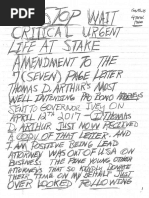 STOP WAIT
CRITICAL URGENT
LIFE AT STAKE
AMENDMENT TO THE
7 (SEVEN) PAGE LETER
THOMAS D. ARTHUR'S MOST
WELL INTENDING PRO BONO
SENT TO GOVERNOR IVEY ON
APRIL 19TH 2017 - I THOMAS
D. ARTHUR JUST NOW RECEIVED
COPY OF THAT LETTER. AND
I AM POSITIVE BEING LEAD
ATTORNEY WAS OUT OF U.S.A ON
BUSINESS. THE FINE YOUNG OTHER
ATTORNEYS THAT SO KINDLY DONATE
THEIR TIME ON MY BEHALF JUST
OVER LOOKED FOLLOWING